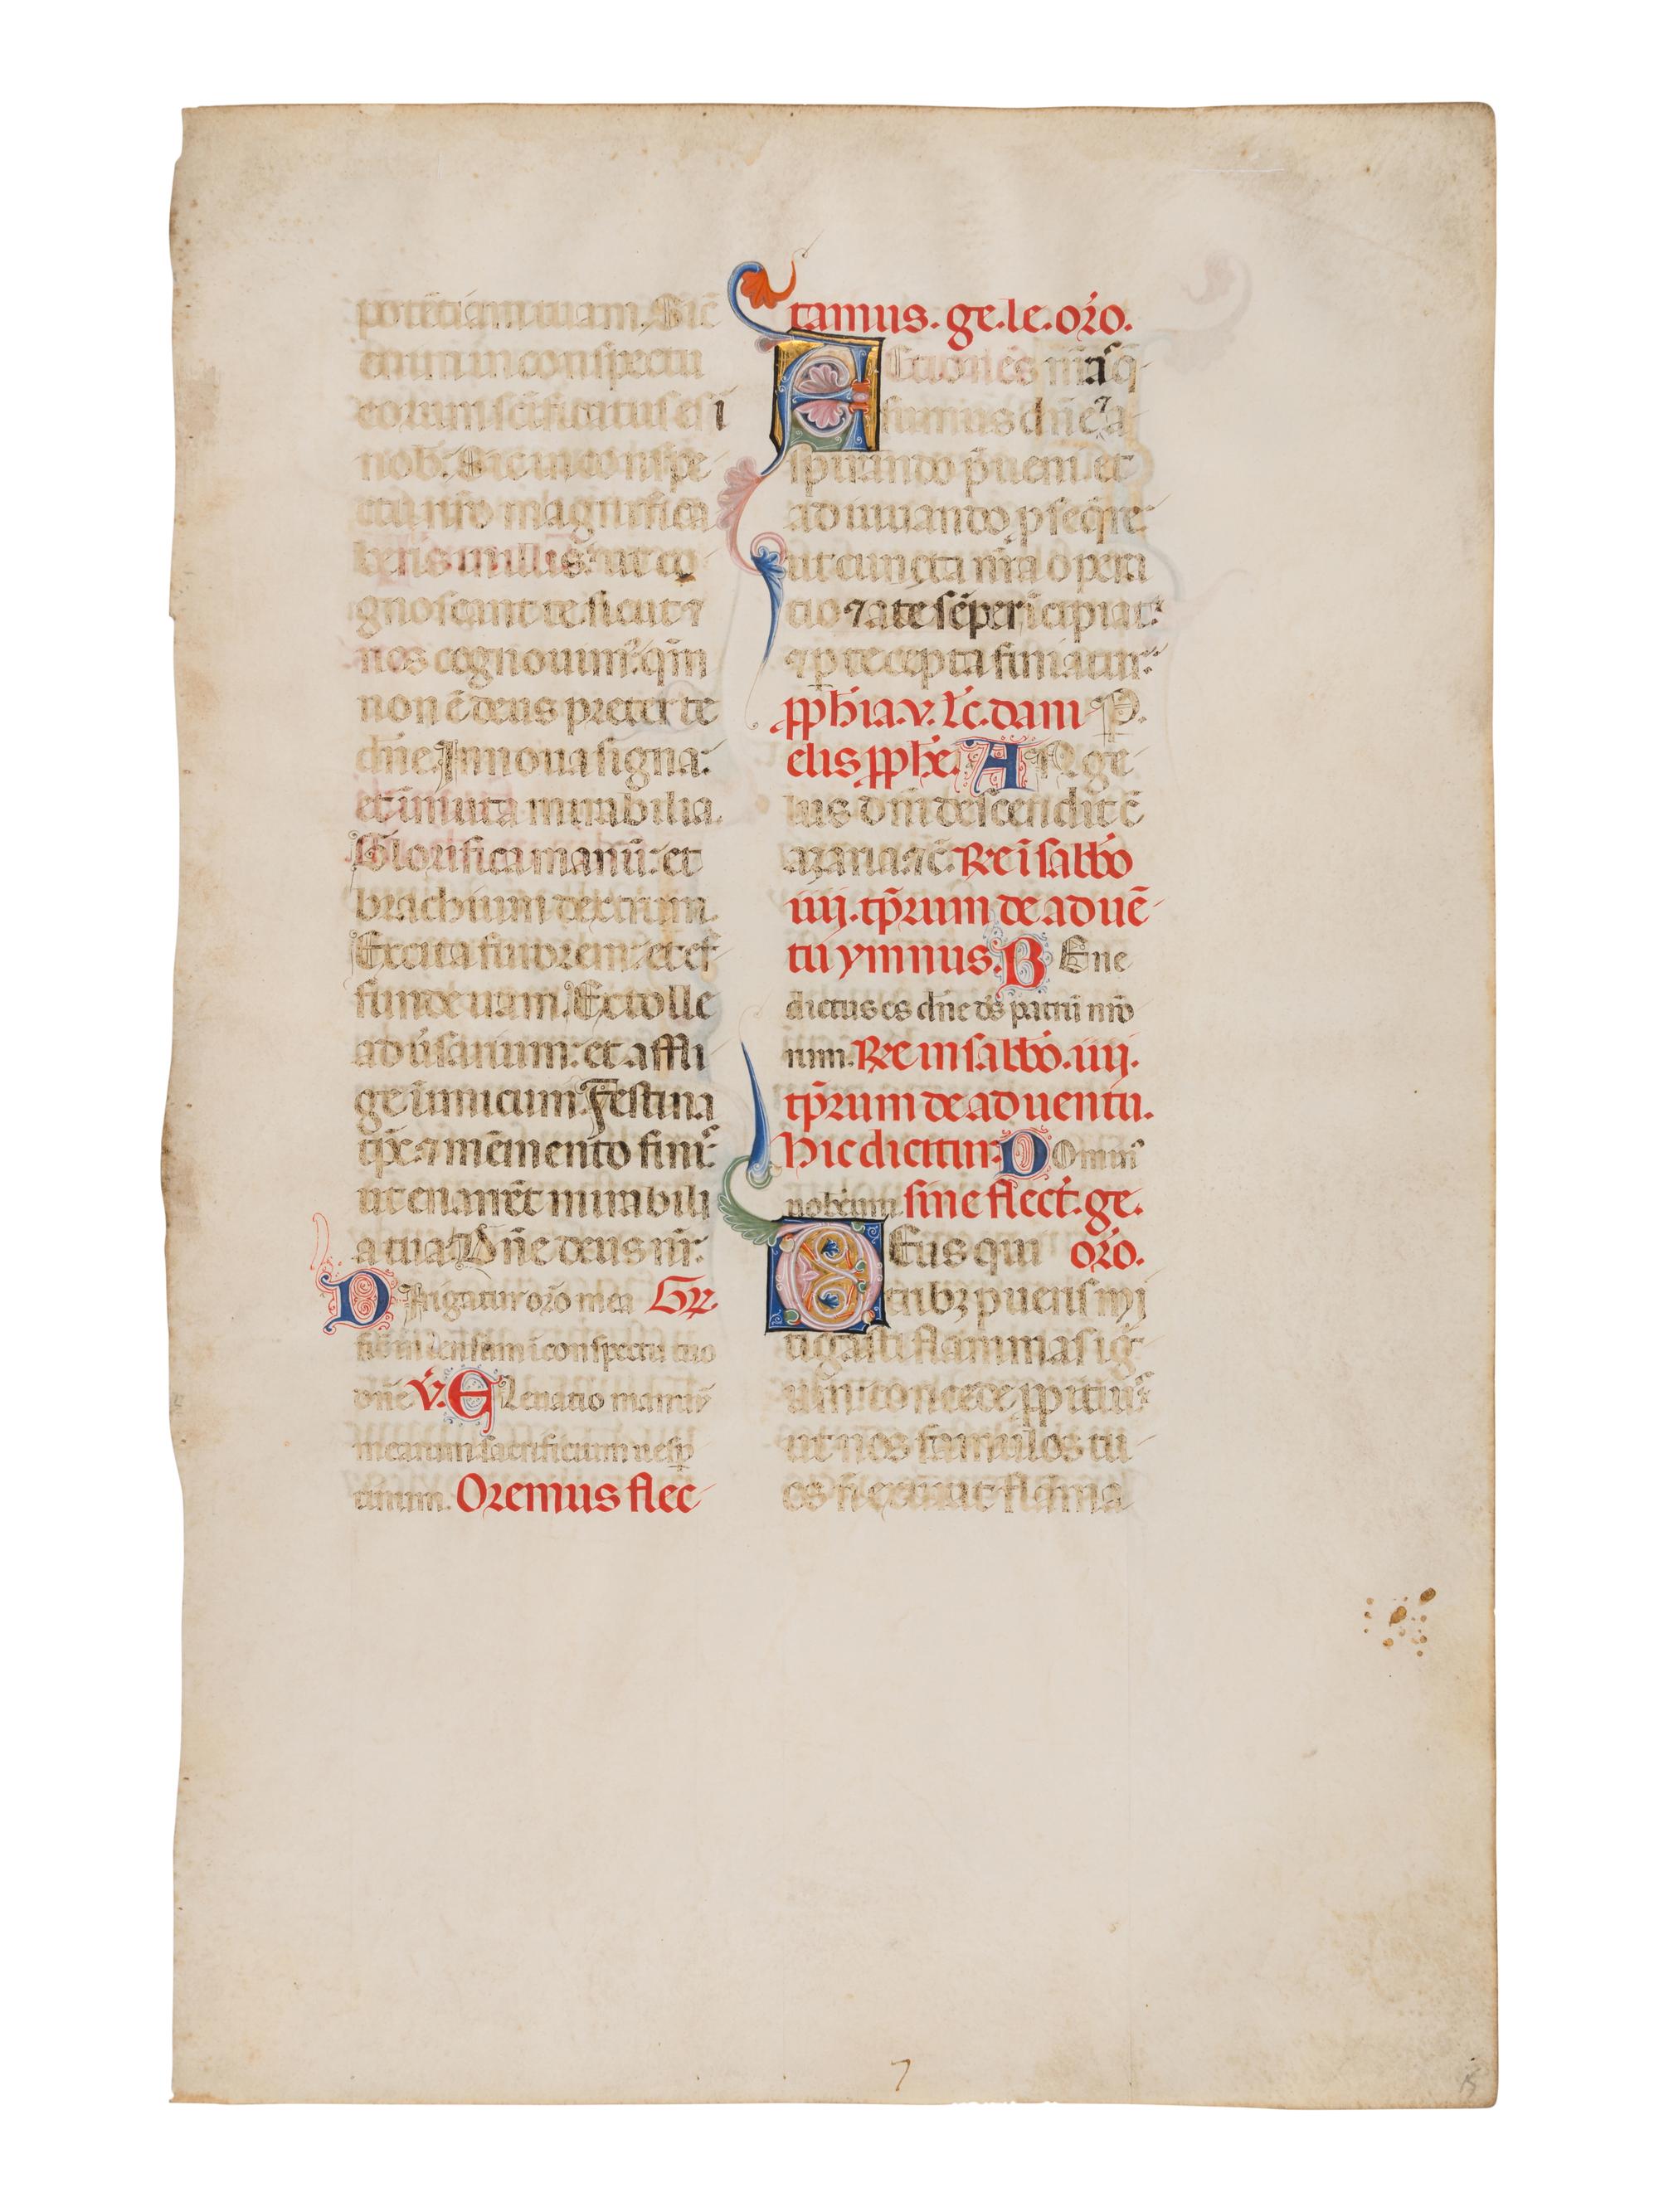 potētiam tuam. Sic̄
enim in conspectu
eorum scīficatus es ī
nob̄. Sic in conspe
ctu nr̄o magnifica
beris in illis: ut co
gnoscant te sicut ⁊
nos cognouim᷒: qm̄
non ē deus preter te
dn̄e. Innoua signa:
et īmuta mirabilia.
Glorifica manū: et
brachium dextrum.
Excita furorem: et ef
funde iram. Extolle
adūsarium: et affli
ge inimicum. Festina
tp̄s ⁊ memento finis
ut enarrēt mirabili
a tua. Dn̄e deus nr̄.
DIrigatur or̄o mea Gr̄.
sic incensum ī conspectu tuo
dn̄e ℣. ELeuatio manuū
mearum sacrificium uesp̄
tinum. Oremus flec
tamus. ge. le. or̄o.
ACtiones nr̄as q̄
sumus dn̄e ⁊ a
spirando p̄ueni. et
adiuuando ꝓseq̄re
ut cuncta nr̄a opera
tio ⁊ a te sēper īcipiat:
⁊ p te cepta finiatur.
ꝓph̄ia. v. lc̄. dani P.
elis ꝓph̄e. ANge
lus dn̄i descendit c̄
azaria ⁊c̄. Re ī sabb̄o
iiij. tp̄rum de aduē
tu ymnus. BEne
dictus es dn̄e ds̄ patrū nr̄o
rum. Re in sabb̄o. iiij.
tp̄rum de aduentu.
Hic dicitur. DOmin᷒
nobcum sine flect̄. ge.
DEus qui or̄o.
tribꝫ pueris mi
tigasti flammas ig
niū: concede ꝓpitius
ut nos famulos tu
os n̄ exurat flāma
7